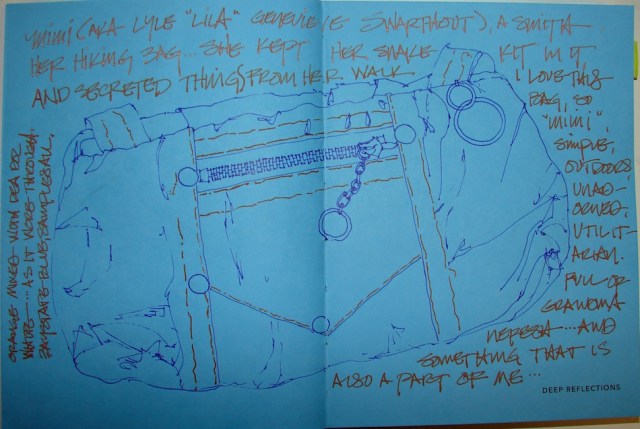 MIMI (AKA LYLE "LILA" GENEVIEVE SWARTHOUT), A SMITH
HER HIKING BAG... SHE KEPT HER SNAKE KIT IN IT,
AND SECRETED THINGS FROM HER WALK
I LOVE THIS
BAG, SO
"MIMI",
SIMPLE,
OUTDOORS
UNAD-
ORNED,
UTILIT-
ARIAN.
FULL OF
GRANDMA
NEPESA....AND
SOMETHING THAT IS
ALSO A PART OF ME...
ORANGE MIXED WITH
WHITE... AS IT WORE THROUGH.
BLUE, SAMPLES ALL.
DEEP REFLECTIONS